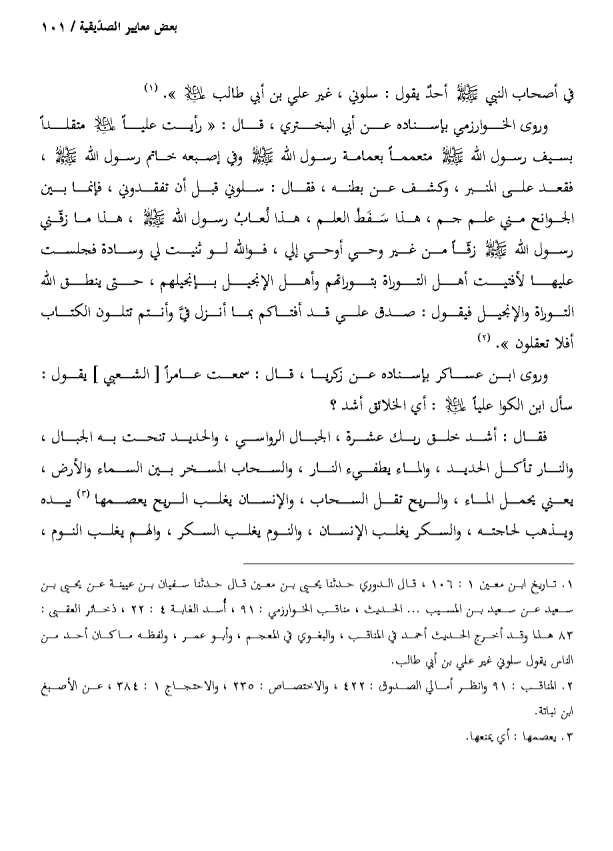 بعض معايير الصدّيقية / ١٠١
في أصحاب النبي ﷺ أحدٌ يقول : سلوني ، غير علي بن أبي طالب عليه‌السلام ». (١)
وروى الخوارزمي بإسناده عن أبي البختري ، قال : « رأيت علياً عليه‌السلام متقلداً
بسيف رسول الله ﷺ متعمماً بعمامة رسول الله ﷺ وفي إصبعه خاتم رسول الله ﷺ ،
فقعد على المنبر ، وكشف عن بطنه ، فقال : سلوني قبل أن تفقدوني ، فإنما بين
الجوانح مني علم جم ، هذا سَفَطُ العلم ، هذا لُعابُ رسول الله ﷺ ، هذا ما زقّني
رسول الله ﷺ زقّاً من غير وحي أوحي إلي ، فوالله لو ثُنيت لي وسادة فجلست
عليها لأفتيت أهل التوراة بتوراتهم وأهل الإنجيل بإنجيلهم ، حتى ينطق الله
التوراة والإنجيل فيقول : صدق علي قد أفتاكم بما أنزل فيَّ وأنتم تتلون الكتاب
أفلا تعقلون ». (٢)
وروى ابن عساكر بإسناده عن زكريا ، قال : سمعت عامراً [ الشعبي ] يقول :
سأل ابن الكوا علياً عليه‌السلام : أي الخلائق أشد ؟
فقال : أشد خلق ربك عشرة ، الجبال الرواسي ، والحديد تنحت به الجبال ،
والنار تأكل الحديد ، والماء يطفيء النار ، والسحاب المسخر بين السماء والأرض ،
يعني يحمل الماء ، والريح تقل السحاب ، والإنسان يغلب الريح يعصمها (٣) بيده
ويذهب لحاجته ، والسكر يغلب الإنسان ، والنوم يغلب السكر ، والهم يغلب النوم ،
١. تاريخ ابن معين ١ : ١٠٦ ، قال الدوري حدثنا يحيى بن معين قال حدثنا سفيان بن عيينة عن يحيى بن
سعيد عن سعيد بن المسيب ... الحديث ، مناقب الخوارزمي : ٩١ ، أُسد الغابة ٤ : ٢٢ ، ذخائر العقبى :
٨٣ هذا وقد أخرج الحديث أحمد في المناقب ، والبغوي في المعجم ، وأبو عمر ، ولفظه ما كان أحد من
الناس يقول سلوني غير علي بن أبي طالب.
٢. المناقب : ٩١ وانظر أمالي الصدوق : ٤٢٢ ، والاختصاص : ٢٣٥ ، والاحتجاج ١ : ٣٨٤ ، عن الأصبغ
ابن نباتة.
٣. يعصمها : أي يمنعها.